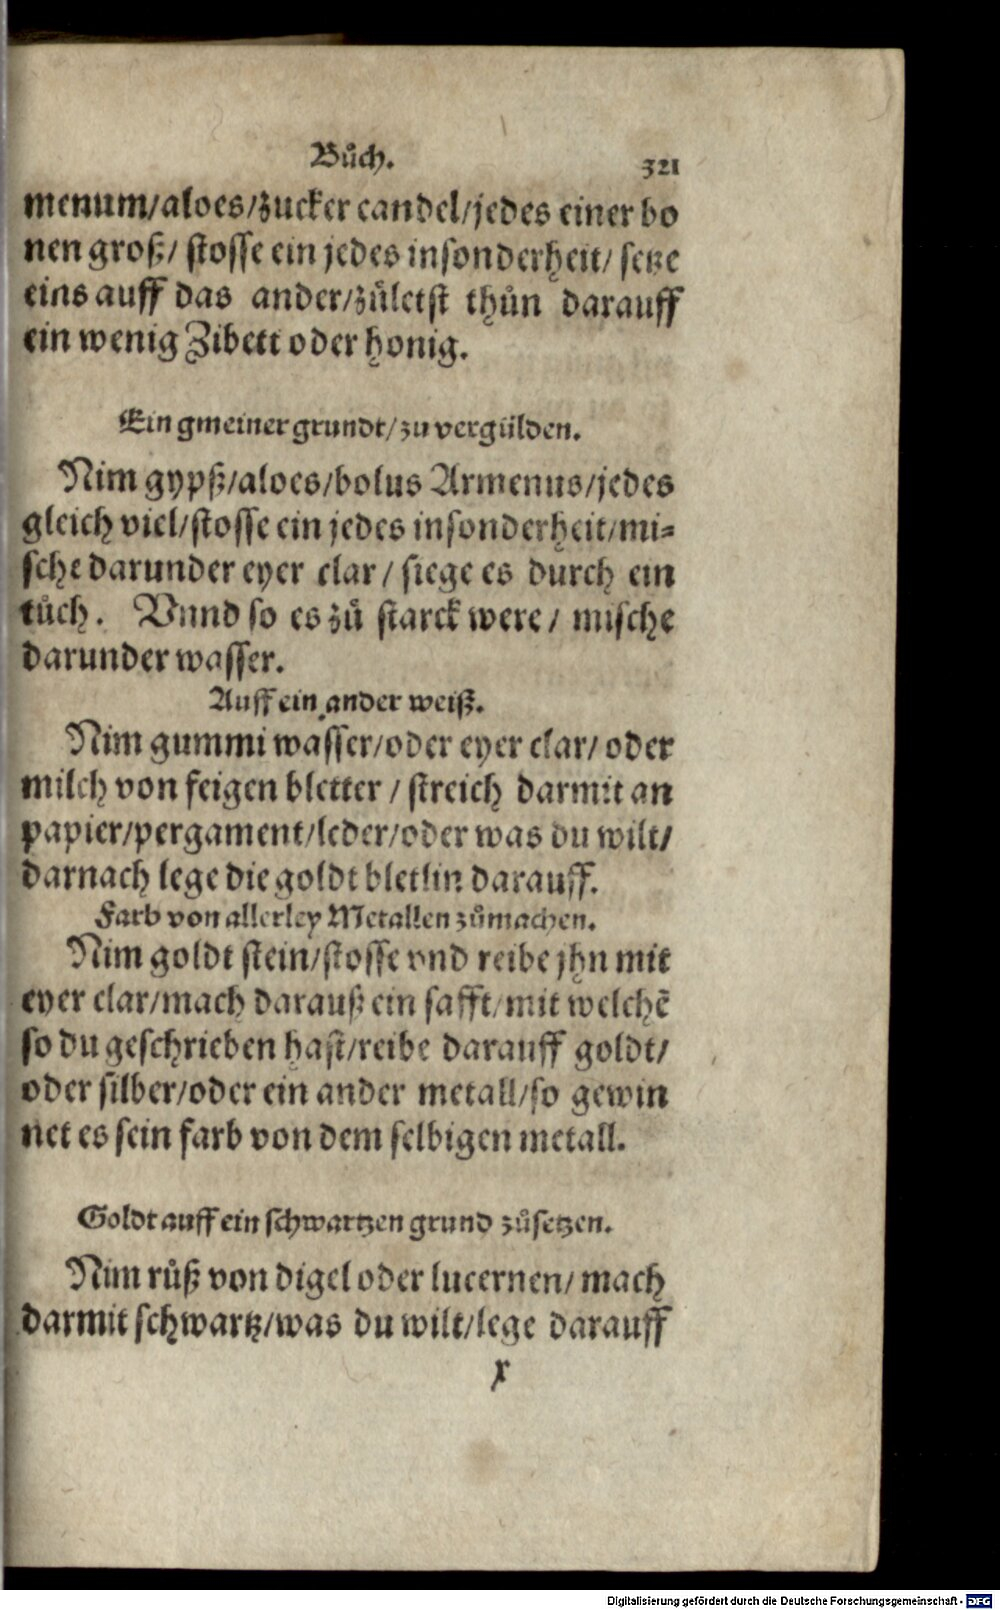 Bůch. 321
menum/aloes/zucker candel/jedes einer bo
nen groß/ stosse ein jedes insonderheit/ setze
eins auff das ander/zůletst thůn darauff
ein wenig Zibett oder honig.
Ein gmeiner grundt/zu vergülden.
Nim gypß/aloes/bolus Armenus/jedes
gleich viel/stosse ein jedes insonderheit/mi-
sche darunder eyer clar/ siege es durch ein
tůch. Vnnd so es zů starck were/ mische
darunder wasser.
Auff ein ander weiß.
Nim gummi wasser/oder eyer clar/ oder
milch von feigen bletter/ streich darmit an
papier/pergament/leder/oder was du wilt/
darnach lege die goldt bletlin darauff.
Farb von allerley Metallen zůmachen.
Nim goldt stein/stosse vnd reibe jhn mit
eyer clar/mach darauß ein safft/mit welchē
so du geschrieben hast/reibe darauff goldt/
oder silber/oder ein ander metall/so gewin
net es sein farb von dem selbigen metall.
Goldt auff ein schwartzen grund zůsetzen.
Nim růß von digel oder lucernen/ mach
darmit schwartz/was du wilt/lege darauff
X
Digitalisierung gefördert durch die Deutsche Forschungsgemeinschaft - DFG